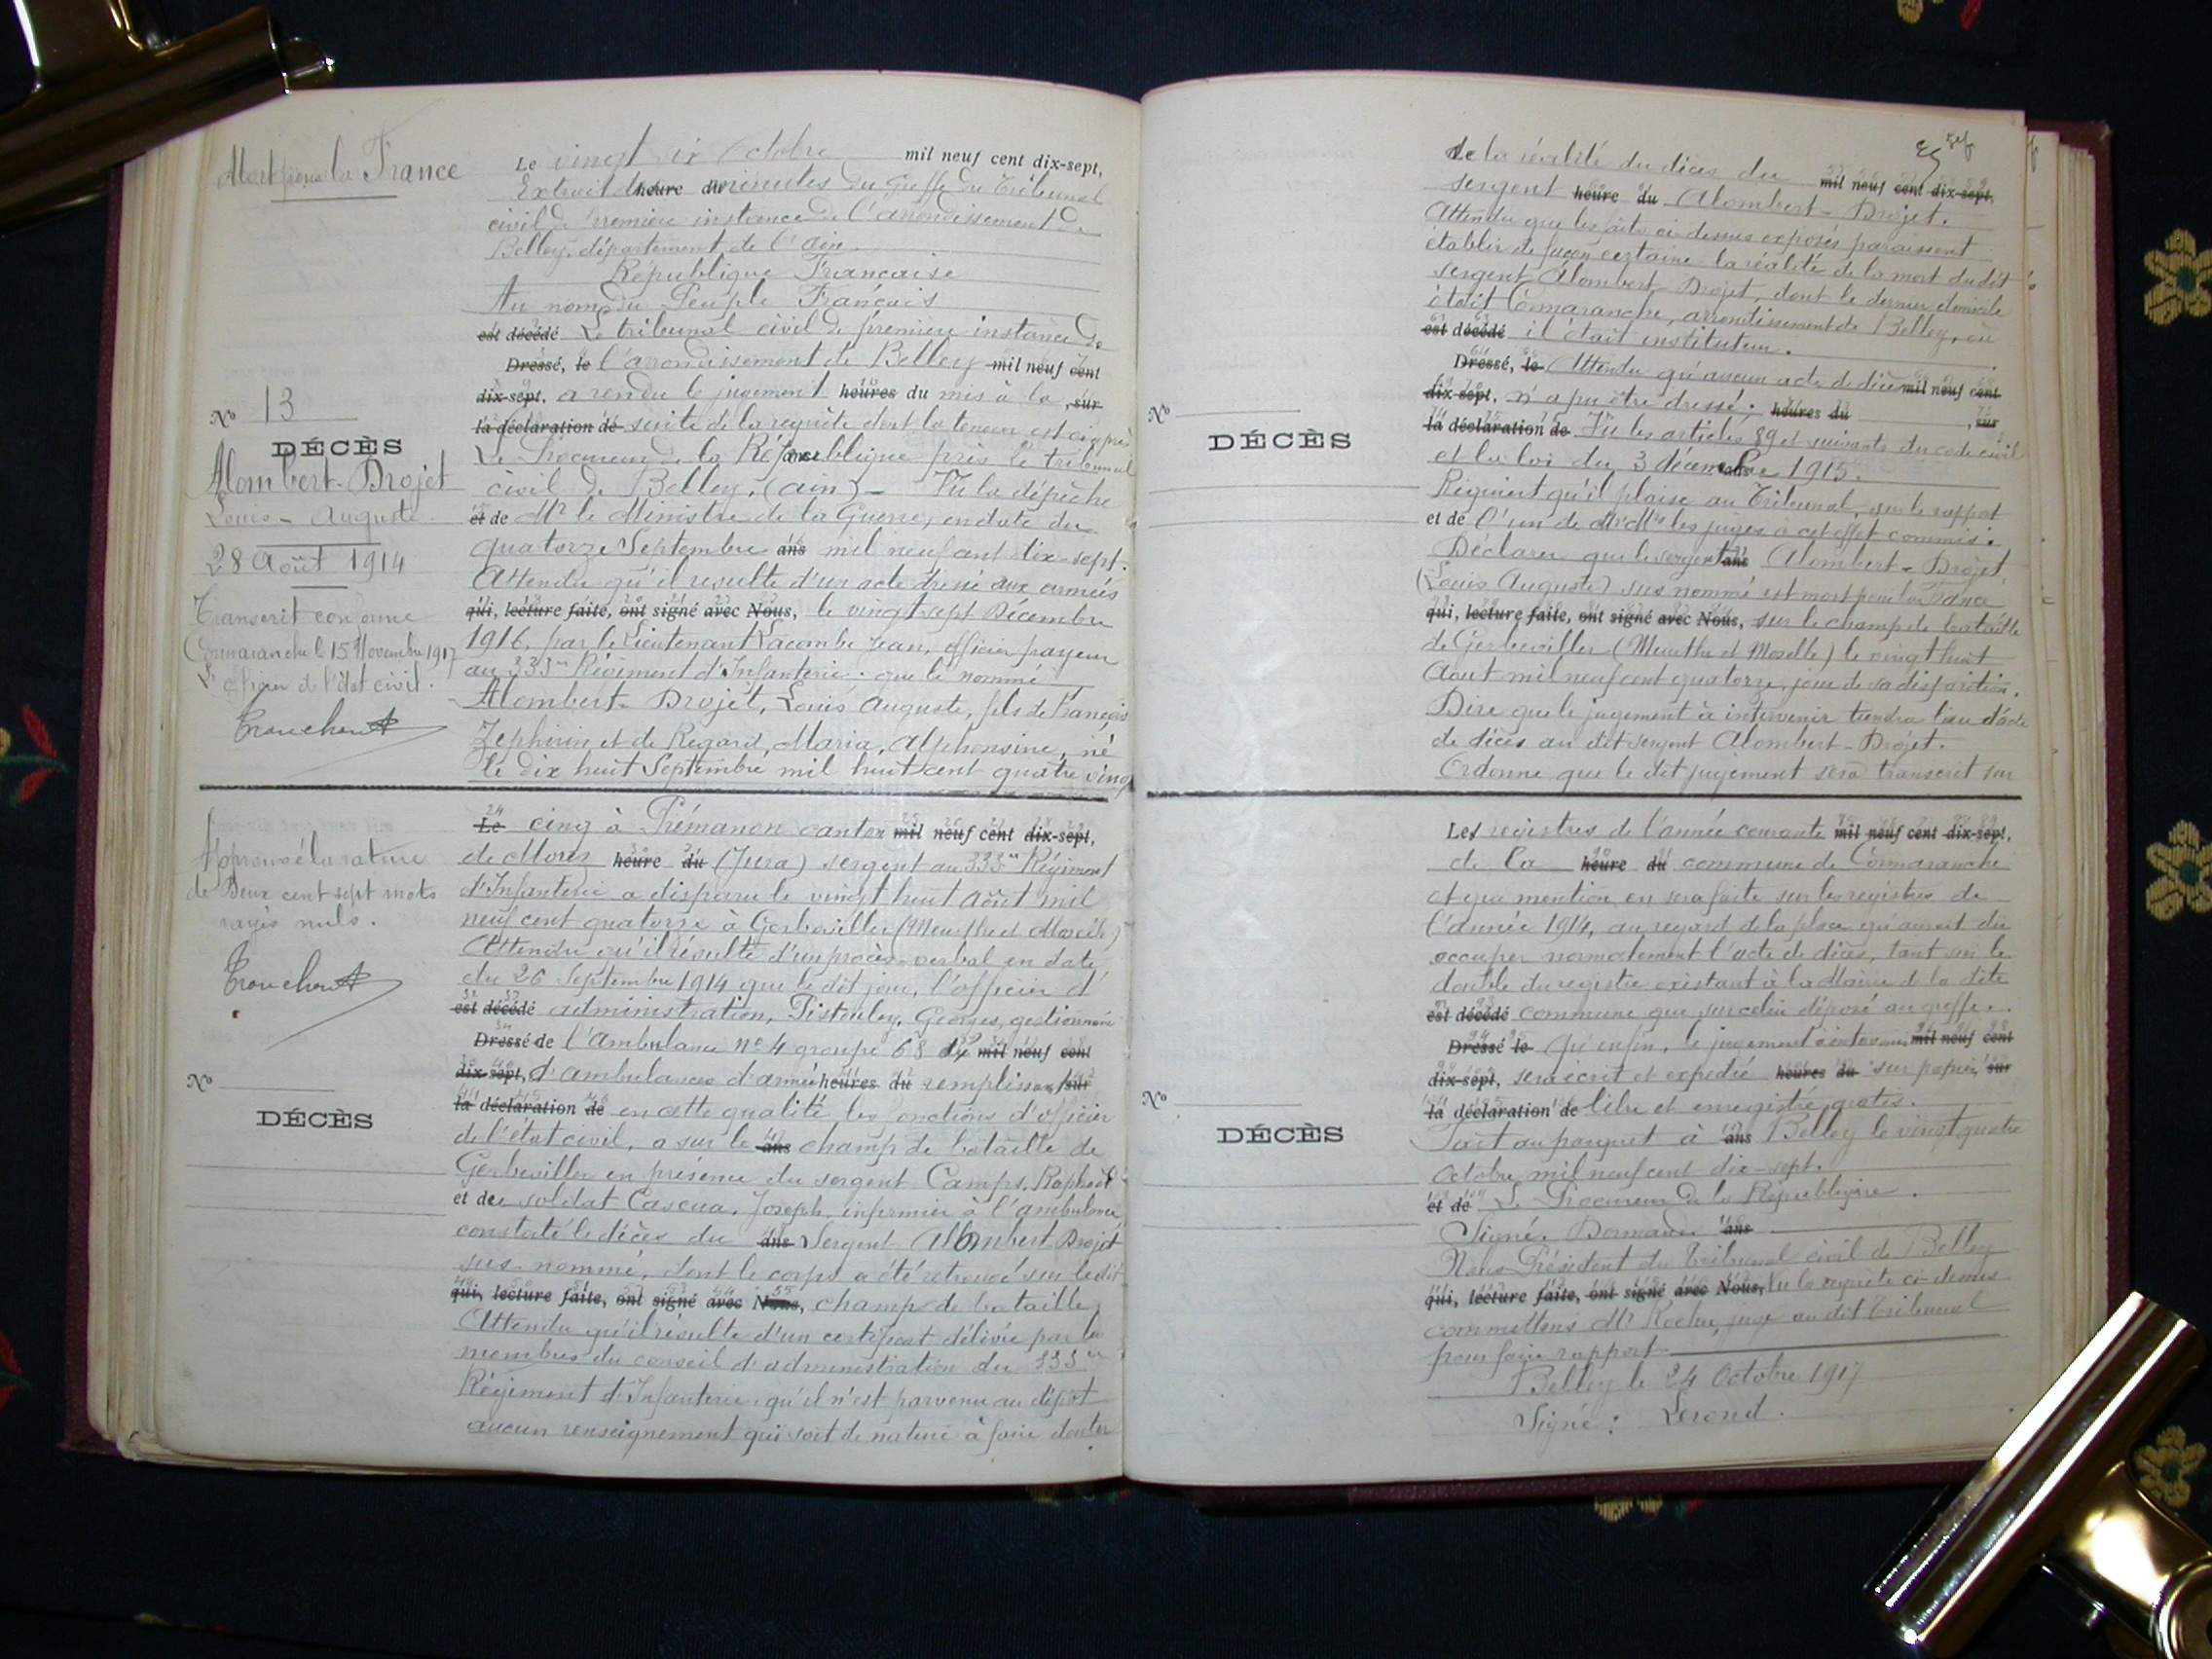 Mort pour la France
Le vingt six Octobre mil neuf cent dix-sept,
Extrait des heure du minutes du Greffe du Tribunal
civil de première instance de l'arrondissement de
Belley, département de l'Ain.
République Française
Au nom du Peuple Français
est décédé Le tribunal civil de première instance de
Dressé, le l'arrondissement de Belley mil neuf cent
dix-sept, a rendu le jugement heures du mis à la , sur
la déclaration de suite de la requête dont la teneur est ci après
Le Procureur de la République près le tribunal
civil de Belley, (ain) - Vu la dépêche
et de Mr le Ministre de la Guerre, en date du
quatorze Septembre ans mil neuf cent dix-sept.
Attendu qu'il resulte d'un acte dressé aux armées
qui, lecture faite, ont signé avec Nous, le vingt sept Décembre
1916, par le Lieutenant Lacombe Jean, officier payeur
au 333me Régiment d'Infanterie ; que le nommé
Alombert-Projet, Louis Auguste, fils de François
Zephirin et de Regard, Maria, Alphonsine, né
le dix huit Septembre mil huit cent quatre ving
No 13
DÉCÈS
Alombert-Projet
Louis - Auguste
28 Août 1914
Transcrit conforme
Cormaranche le 15 Novembre 1917
L'officier de l'état civil.
Le cinq à Prémanon canton mil neuf cent dix-sept,
de Morez heure du (Jura) sergent au 333me Régiment
d'Infanterie a disparu le vingt huit Août mil
neuf cent quatorze à Gerbeviller (Meurthe et Moselle)
Attendu qu'il résulte d'un procès-verbal en date
du 26 Septembre 1914 que le dit jour, l'officier d'
est décédé administration, Georges, gestionnaire
Dressé de l'Ambulance no 4 groupe 68 dy mil neuf cent
dix-sept, d'ambulances d'armée heures du remplissant sur
la déclaration de en cette qualité les fonctions d'officier
de l'état civil, a sur le ans champ de bataille de
Gerbeviller en présence du sergent Camps, Raphaël
et de le soldat Cascua, Joseph, infirmier à l'ambulance
constaté le décès du ans Sergent Alombert Projet
sus-nommé, dont le corps a été retrouvé sur le dit
qui, lecture faite, ont signé avec Nous, champ de bataille,
Attendu qu'il résulte d'un certificat délivré par les
membres du conseil d'administration du 333me
Régiment d'Infanterie, qu'il n'est parvenu au dépôt
aucun renseignement qui soit de nature à faire douter
Approuvé la rature
de Deux cent sept mots
rayés nuls.
No
DÉCÈS
de la réalité du décès du mil neuf cent dix-sept,
sergent heure du Alombert-Projet.
Attendu que les faits ci-dessus exposés paraissent
établir de façon certaine la réalité de la mort du dit
sergent Alombert Projet, dont le dernier domicile
était Cormaranche, arrondissement de Belley, où
est décédé il était instituteur.
Dressé, le Attendu qu'aucun acte de décès mil neuf cent
dix-sept, n'a pu être dressé ; heures du , sur
la déclaration de Vu les articles 89 et suivants du code civil
et la loi du 3 décembre 1915.
Requiert qu'il plaise au Tribunal, sur le rapport
et de l'un de MrMrs les juges à cet effet commis.
Déclarer que le sergent ans Alombert-Projet
(Louis Auguste) sus nommé est mort pour la France
qui, lecture faite, ont signé avec Nous, sur le champ de bataille
de Gerbeviller (Meurthe et Moselle) le vingt huit
Aout mil neuf cent quatorze, jour de sa disparition.
Dire que le jugement à intervenir tiendra lieu d'acte
de décès au dit sergent Alombert-Projet.
Ordonne que le dit jugement sera transcrit sur
No
DÉCÈS
Les registres de l'année courante mil neuf cent dix-sept,
de la heure du commune de Cormaranche
et que mention en sera faite sur les registres de
l'année 1914, au regard de la place qu'aurait du
occuper normalement l'acte de décès, tant sur le
double du registre existant à la Mairie de la dite
est décédé commune que sur celui déposé au greffe.
Dressé le Qu'enfin, le jugement à intervenir mil neuf cent
dix-sept, sera écrit et expédié heures du sur papier, sur
la déclaration de libre et enregistré gratis.
Fait au parquet à ans Belley le vingt quatre
Octobre mil neuf cent dix-sept.
et de Le Procureur de la République.
Signé. ans
Nous Président du Tribunal civil de Belley
qui, lecture faite, ont signé avec Nous, Vu la requête ci-dessus
commettons Mr Roche, juge au dit Tribunal
pour faire rapport
Belley le 24 Octobre 1917
Signé : Lerond.
No
DÉCÈS